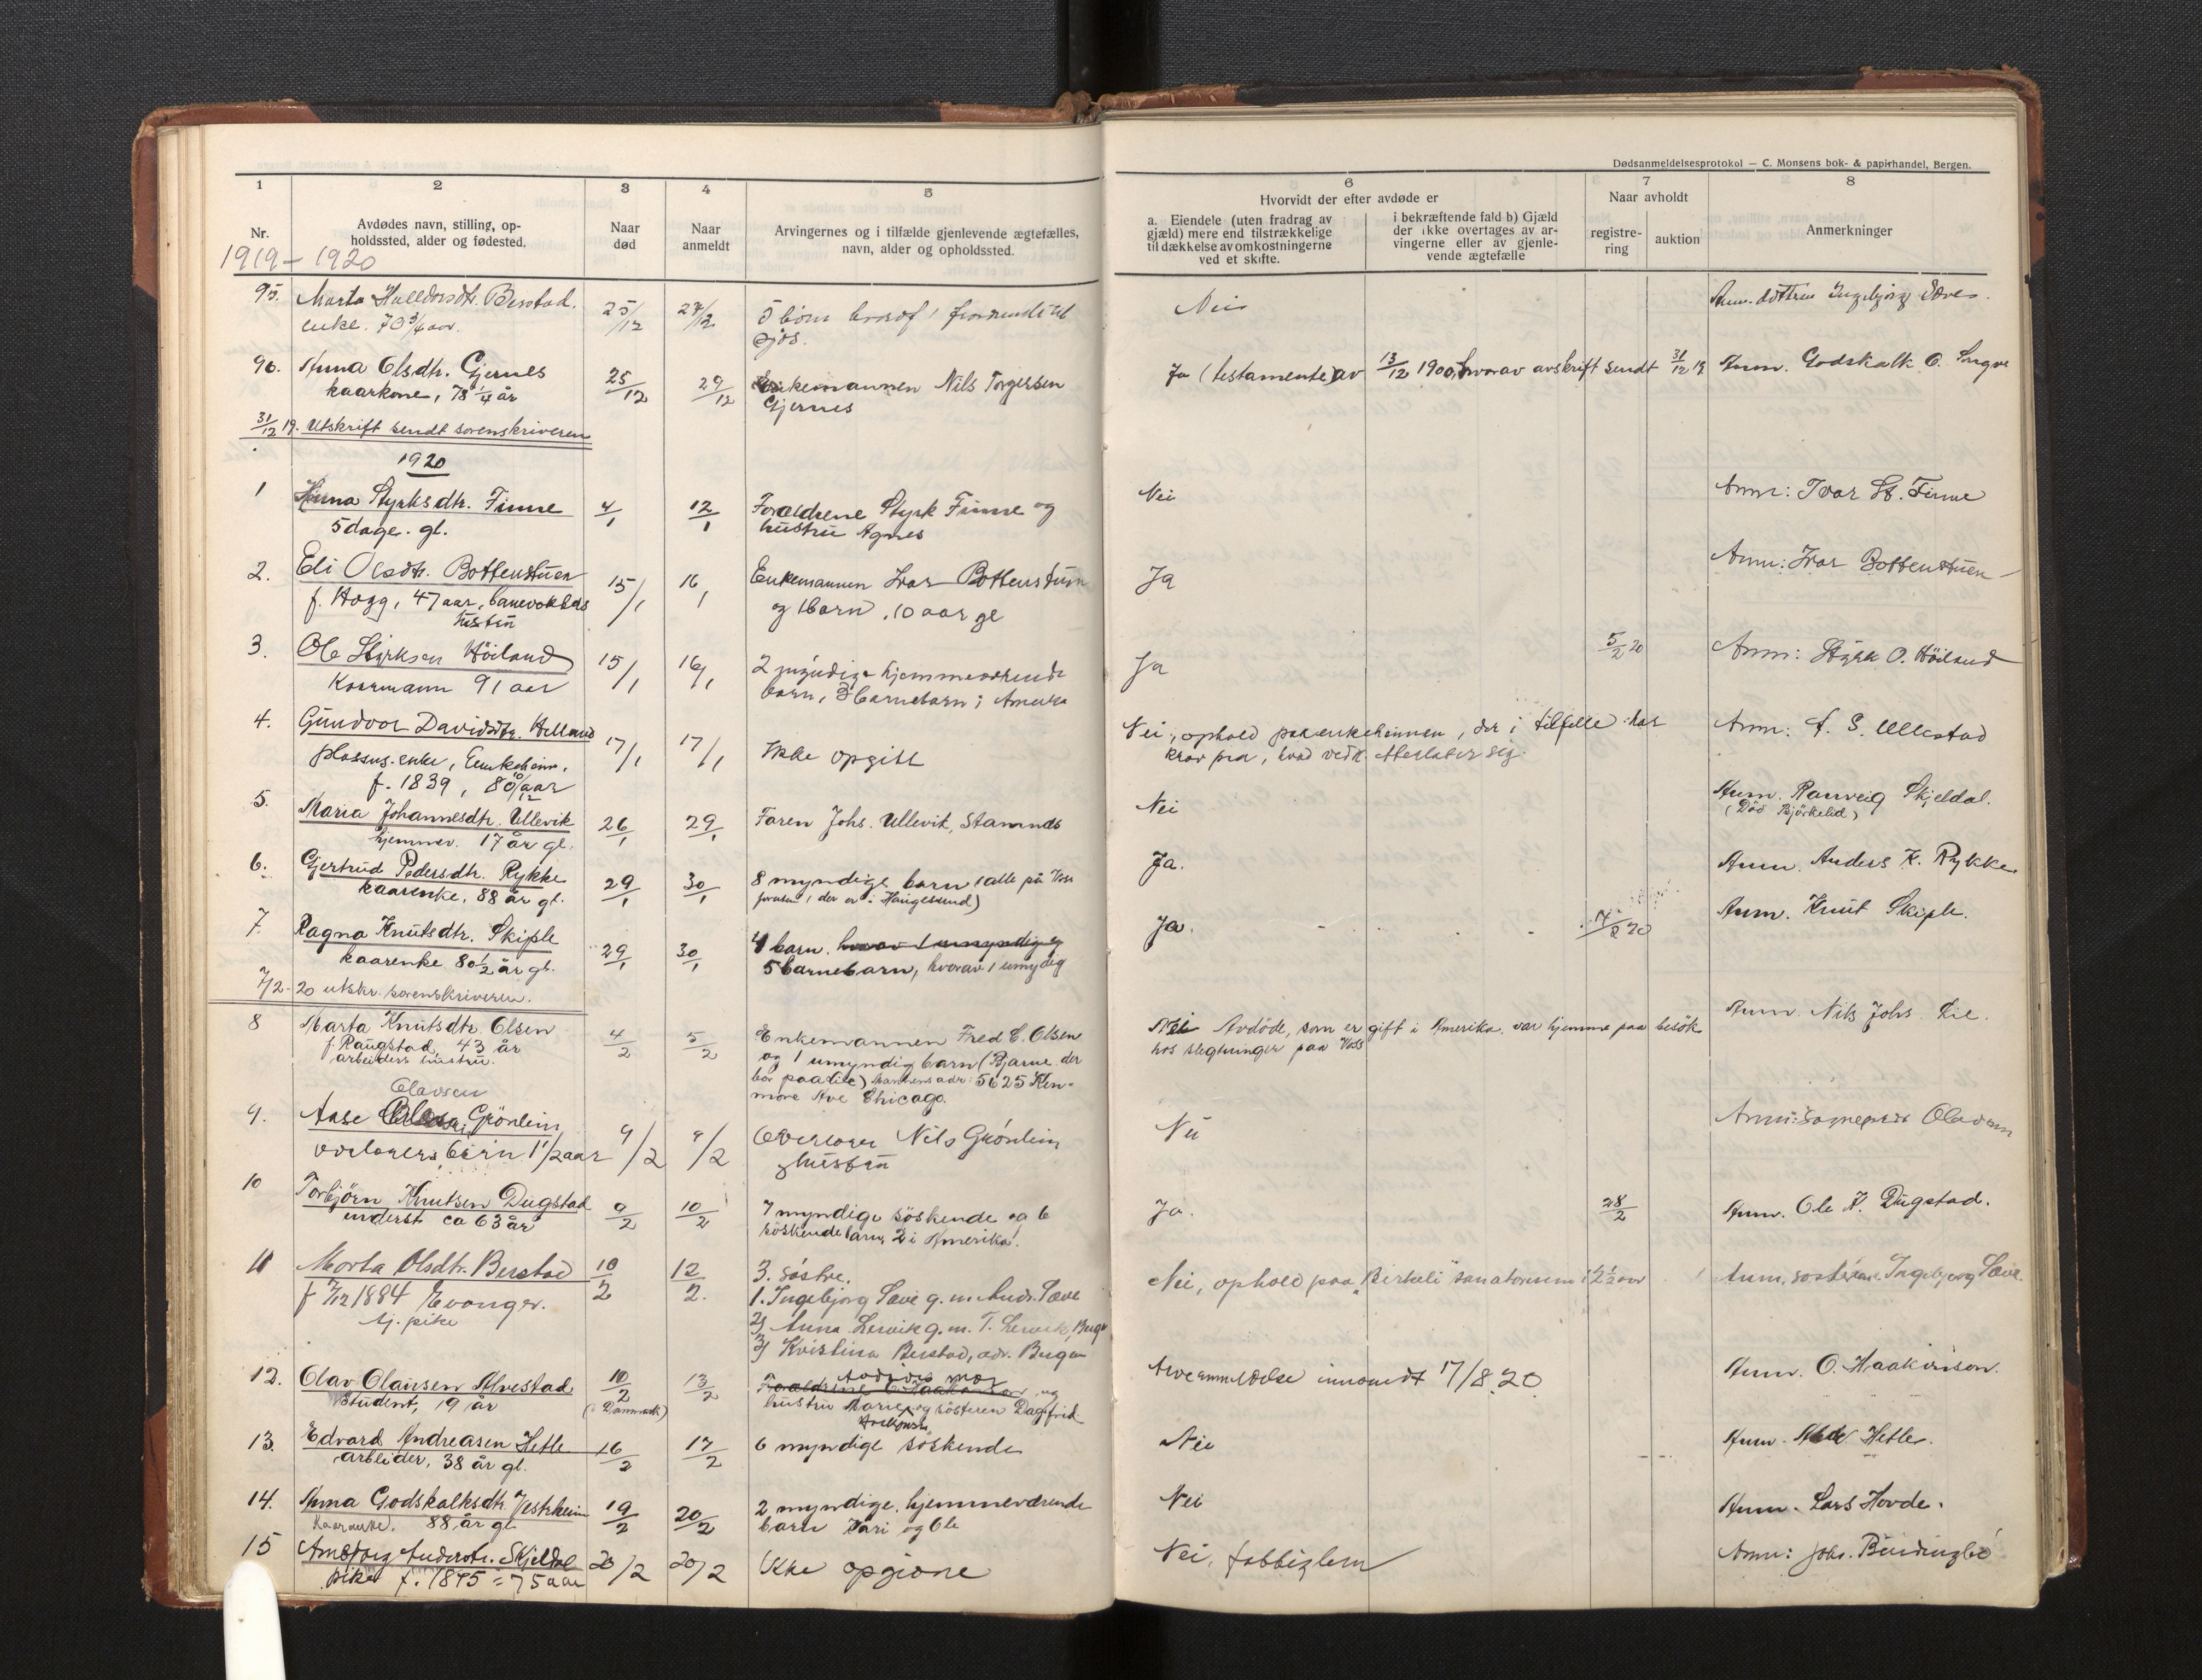 Dødsanmeldelsesprotokol — C. Monsens bok- & papirhandel, Bergen.
1 2 3 4 5 6 7 8
Nr.
Avdødes navn, stilling, op-
holdssted, alder og fødested.
Naar
død
Naar
anmeldt
Arvingernes og i tilfælde gjenlevende ægtefælles,
navn, alder og opholdssted.
Hvorvidt der efter avdøde er
a. Eiendele (uten fradrag av
gjæld) mere end tilstrækkelige
til dækkelse av omkostningerne
ved et skifte.
i bekræftende fald b) Gjæld
der ikke overtages av ar-
vingerne eller av gjenle-
vende ægtefælle
Naar avholdt
registre-
ring
auktion
Anmerkninger
1919 - 1920
95. Marta Halldorsdtr. Berstad. 25/12 27/12 5 børn hvoraf 1 til Nei Anm. dottren Ingebjørg Sæve.
enke. 70 3/4 aar. sjøs.
96. Anna Olsdtr. Gjernes 25/12 29/12 Enkemannen Nils Torgersen Ja (testamente) av 13/12 1900, hvorav avskrift sendt 31/12 19 Anm. Godskalk O.
kaarkone, 78 1/4 år Gjernes
31/12 19. Utskrift sendt sorenskriveren
1920
1 Styrksdtr. Finne 4/1 12/1 Forældrene Styrk Finne og Nei Anm: Ivar St. Finne
5 dage. gl. hustru Agnes
2. Eli Olsdtr. Bottenstuen 15/1 16/1 Enkemannen Ivar Bottenstuen Ja Anm: Ivar Bottenstuen
f. Hogg, 47 aar, banevokters og 1 barn, 10 aar gl
hustru
3. Ole Styrksen Höiland 15/1 16/1 2 myndige hjemmeværende Ja 5/2 20 Anm: Styrk O. Höiland
Kaarmann 91 aar barn, 3 barnebarn i Amerika
4. Gundvor Davidsdtr. Helland 17/1 17/1 Ikke opgitt Nei, ophold paa enkeheimen, der i tilfelle har Anm: S. Ullestad
plassus. enke, Enkeheim. krav paa, hvad vedk. efterlater sig.
f. 1839, 80 10/12 aar
5. Maria Johannesdtr. Ullevik 26/1 29/1 Faren Johs. Ullevik, Stamnes Nei Anm. Ranveig Skjeldal.
hjemmev. 17 år gl. (Död Björkelid)
6. Gjertrud Pedersdtr. Rykke 29/1 30/1 8 myndige barn (alle på Voss Ja. Anm. Anders K. Rykke.
kaarenke, 88 år gl. foruten 1 der er i Haugesund)
7. Ragna Knutsdtr. Skiple 29/1 30/1 4 barn. hvorav 1 umyndig og Ja. 17/2 20 Anm. Knut Skiple.
kaarenke 80 1/2 år gl. 5 barnebarn, hvorav 1 umyndig
7/2 - 20 utskr. sorenskriveren.
8 Marta Knutsdtr. Olsen 4/2 5/2 Enkemannen Fred C. Olsen Nei Avdöde, som er gift i Amerika, var hjemme paa besök Anm. Nils Johs. Lie.
f. Raugstad, 43 år og 1 umyndig barn (Bjarne der hos slegtninger paa Voss
arbeiders hustru. bor paa Lie) Mandens adr: 5625 Ken-
more Ave Chicago.
Olavsen
9. Aase Grönlein 9/2 9/2 Overlærer Nils Grönlien Nei Anm: Sogneprest Olavsen
overlærers barn 1 1/2 aar og hustru
10 Torbjörn Knutsen Dugstad 9/2 10/2 7 myndige söskende og 6 Ja. 28/2 Anm. Ole K. Dugstad.
inderst ca 63 år söskendebarn, 2 i Amerika.
11 Marta Olsdtr. Berstad 10/2 12/2. 3. søstre. Nei, ophold paa "Birkeli" sanatorium i 2 1/2 aar Anm. sosteren Ingebjørg Sæve.
f 7/12 1884 Evanger. 1. Ingebjørg Sæve g. m. Andr. Sæve
tj. pike 2) Anna Lervik g. m. T. Lervik, Bergen
3) Kristina Berstad, adr. Bergen
12. Olav Olausen Alvestad 10/2 13/2 Avdödes mor Arveanmeldelse innsendt 17/8. 20 Anm. O. Haakonson.
Student, 19 år (i Danmark) Forældrene O. Haakonson og
hustru Marie og sösteren Dagfrid
13. Edvard Andreasen Hefle 16/2 17/2 6 myndige söskende Nei Anm. Hefle.
arbeider, 38 år gl.
14. Anna Godskalksdtr. Vestrheim 19/2 20/2 2 myndige, hjemmeværende Nei Anm. Lars Hovde.
kaarenke. 88 år gl barn Kari og Ole
15 Ambjørg Andersdtr. Skjeldal 20/2 20/2 Ikke opgivne Nei, fattiglem Anm: Johs.
pike f. 1845 = 75 aar